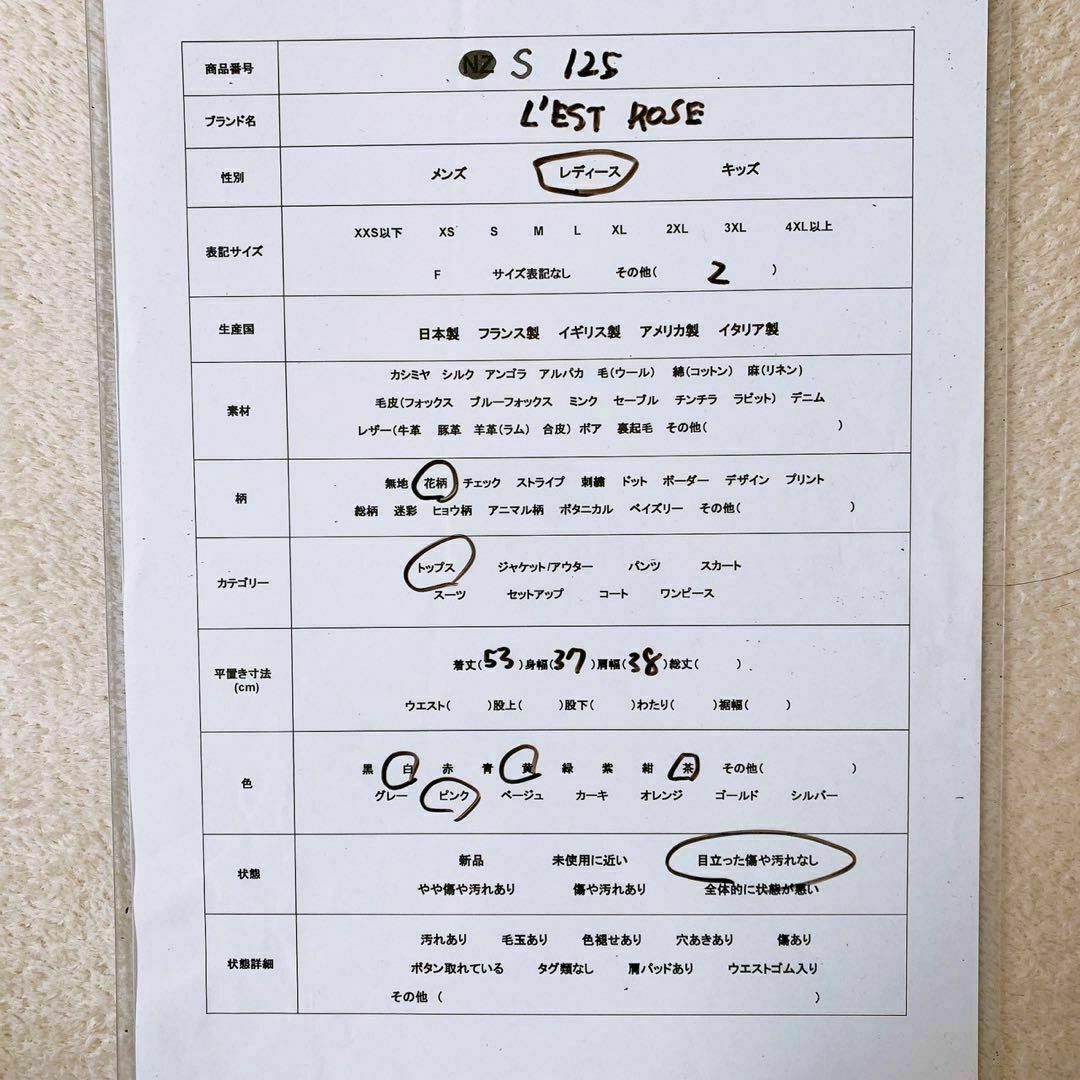 商品番号 NZ S 125
ブランド名 L'EST ROSE
性別 メンズ レディース キッズ
表記サイズ
XXS以下 XS S M L XL 2XL 3XL 4XL以上
F サイズ表記なし その他( 2 )
生産国 日本製 フランス製 イギリス製 アメリカ製 イタリア製
素材
カシミヤ シルク アンゴラ アルパカ 毛(ウール) 綿(コットン) 麻(リネン)
毛皮(フォックス ブルーフォックス ミンク セーブル チンチラ ラビット) デニム
レザー(牛革 豚革 羊革(ラム) 合皮) ボア 裏起毛 その他( )
柄
無地 花柄 チェック ストライプ 刺繍 ドット ボーダー デザイン プリント
総柄 迷彩 ヒョウ柄 アニマル柄 ボタニカル ペイズリー その他( )
カテゴリー
トップス ジャケット/アウター パンツ スカート
スーツ セットアップ コート ワンピース
平置き寸法
(cm)
着丈(53)身幅(37)肩幅(38)総丈( )
ウエスト( )股上( )股下( )わたり( )裾幅( )
色
黒 白 赤 青 黄 緑 紫 紺 茶 その他( )
グレー ピンク ベージュ カーキ オレンジ ゴールド シルバー
状態
新品 未使用に近い 目立った傷や汚れなし
やや傷や汚れあり 傷や汚れあり 全体的に状態が悪い
状態詳細
汚れあり 毛玉あり 色褪せあり 穴あきあり 傷あり
ボタン取れている タグ類なし 肩パッドあり ウエストゴム入り
その他 ( )